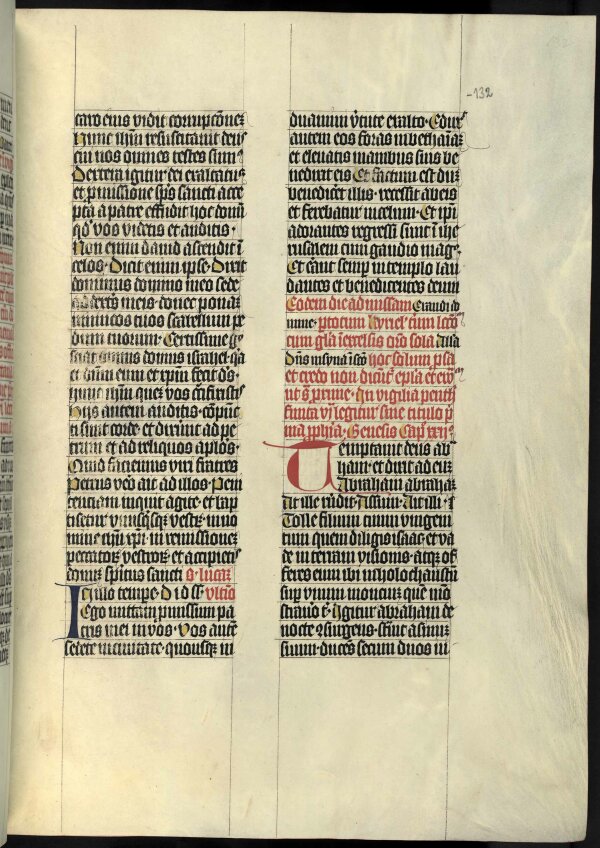 -132
caro eius vidit corrupcōnez
Hunc ihm resuscitavit deus
cui nos omnes testes sumꝰ
Dextera igitur dei exaltatus
et promissione spūs sancti acce
pta a patre effudit hoc donū
qd̕ vos videtis et auditis ·
Non enim david ascendit ī
celos · Dicit enim ipse · Dixit
dominus domino meo sede
ad dextris meis · donec ponaꝫ
inimicos tuos scabellum pe
dum tuorum · Certissime
sciat omnis domus israhel · qa
et dnm eum et xpm fecit dꝰs ·
hunc ihm quez vos crucifixistis
Hiis autem auditis · cōpunc
ti sunt corde · et dixerunt ad pe
trum et ad reliquos aplos ·
Quid faciemus viri fratres
Petrus vero ait ad illos · Peni
tenciam inquit agite · et bap
tisetur unusqꝫsqꝫ vestrꝫ · in no
mine ihu xpi · in remissionez
peccatorꝫ vestrorꝫ · et accipietis
donuꝫ spiritus sancti S · lucaꝫ
In illo tempe · D · id ss · vltīo
Ego mittam promissum pa
tris mei in vos · Vos autē
sedete in civitate · quousqꝫ in
duamini vtute exalto · Eduxᵗ
autem eos foras in bethaniāꝫ
et elevatis manibus suis be
nedixit eis · Et factum est duꝫ
benediceret illis · recessit ab eis
et ferebatur in celum · Et ipi
adorantes regressi sunt in ihe
rusalem cum gaudio mag°
Et erant semp in templo lau
dantes et benedicentes deum
Eodem die ad missam Exaudi do
mine · ptotum kyriel cum lccōe
cum gla in excelsis
Dns in syna in scō hoc solum
et credo non dicunt epla et ewᵐ
ut s prime · In vigilia penth
sexta vj legitur sine titulo p
ma pphia · Genesis Cap xxij
Temptavit deus ab
ham · et dixit ad euꝫ
Abraham abrahaꝫ
At ille rūdit · Assum · Ait illi · ·
Tolle filium tuum unigeni
tum quem diligis isaac · et va
de in terram visionis · atqꝫ of
feres eum ibi in holochaustū
sup unum moncium que mō
strauero t̕ · Igitur abraham de
nocte ɔsurgens · stravit asinuꝫ
suum · ducēs secum duos iu